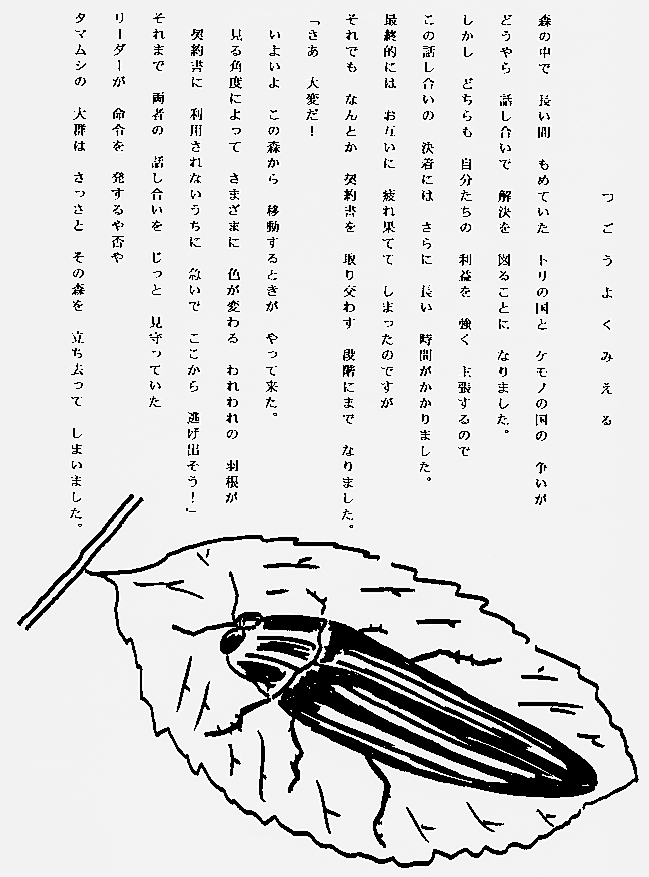 つごうよくみえる
森の中で　長い間　もめていた　トリの国と　ケモノの国の　争いが
どうやら　話し合いで　解決を　図ることに　なりました。
しかし　どちらも　自分たちの　利益を　強く　主張するので
この話し合いの　決着には　さらに　長い　時間がかかりました。
最終的には　お互いに　疲れ果てて　しまったのですが
それでも　なんとか　契約書を　取り交わす　段階にまで　なりました。
「さあ　大変だ！
いよいよ　この森から　移動するときが　やって来た。
見る角度によって　さまざまに　色が変わる　われわれの　羽根が
契約書に　利用されないうちに　急いで　ここから　逃げ出そう！」
それまで　両者の　話し合いを　じっと　見守っていた
リーダーが　命令を　発するや否や
タマムシの　大群は　さっさと　その森を　立ち去って　しまいました。